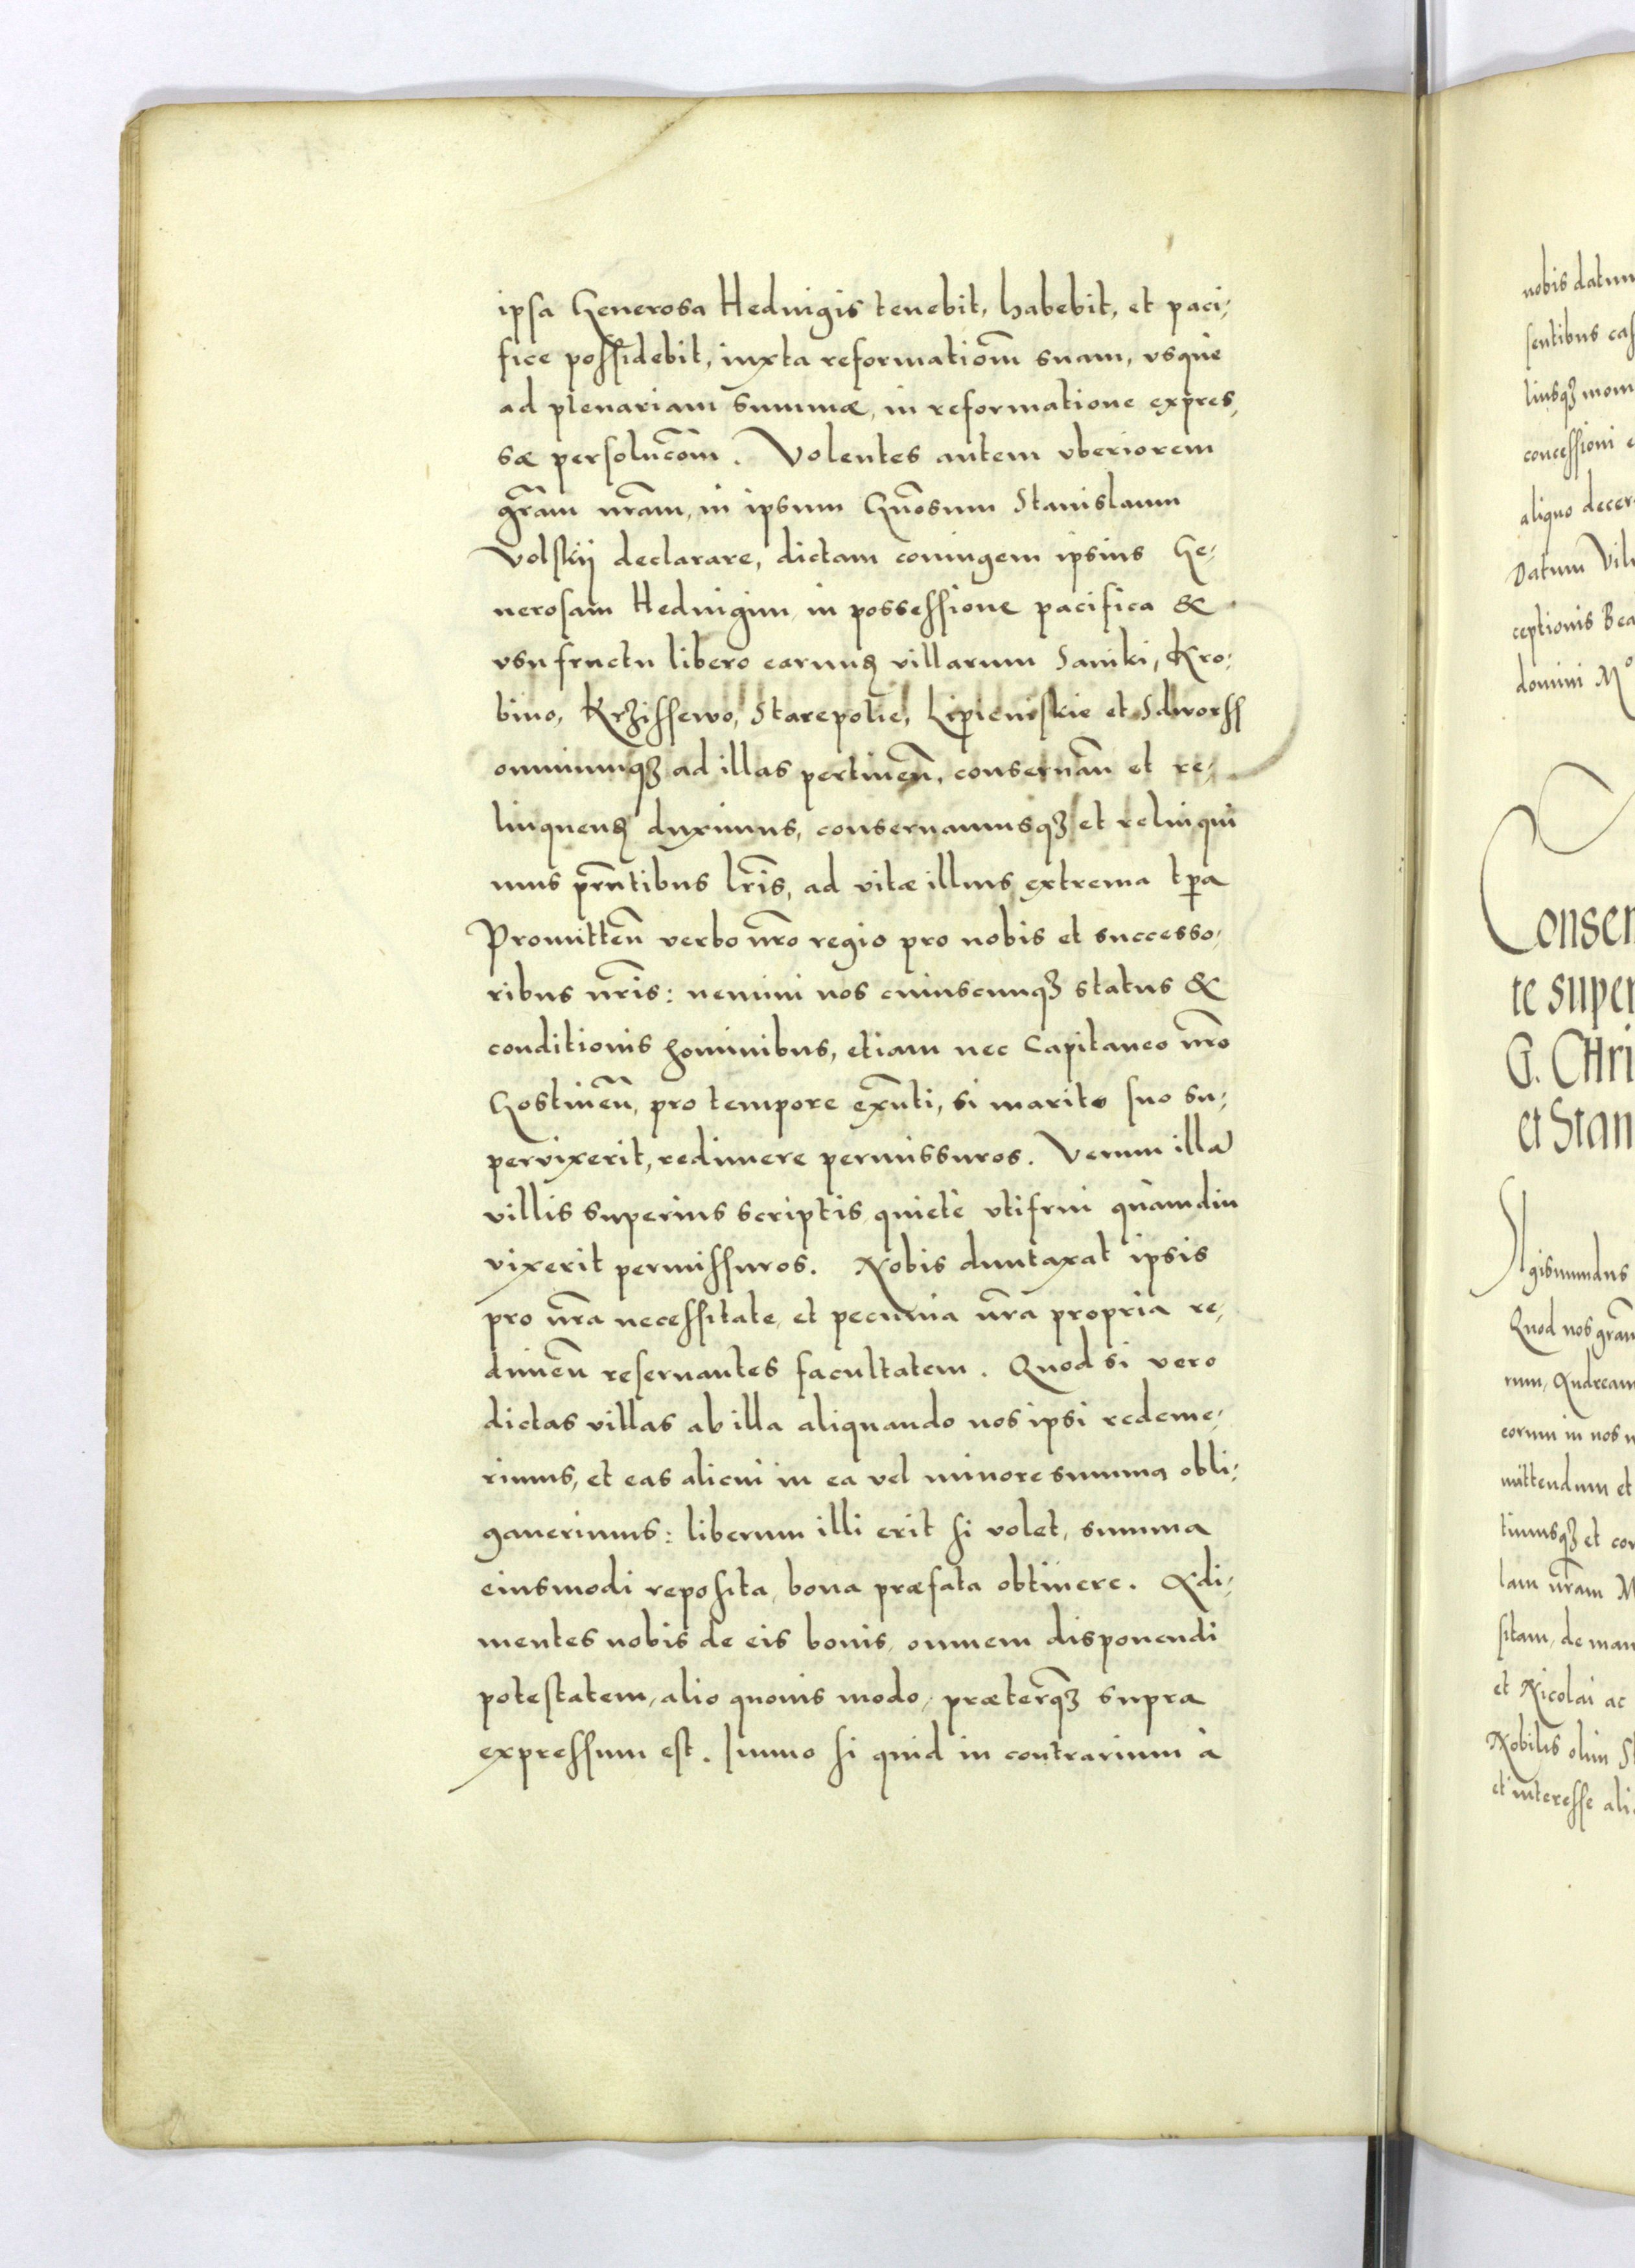 ipsa Generosa Hedvigis tenebit, habebit, et paci-
fice possidebit, iuxta reformationẽ suam, vsque
ad plenariam summæ, in reformatione expres-
sæ persolucõm. Volentes autem vberiorem
grãm nrãm, in ipsum Gñosum Stanislaum
Volskij declarare, dictam coniugem ipsius Ge-
nerosam Hedvigim, in possessione pacifica &
vsufructu libero earumꝗ villarum Saniki, Kro-
bino, Krzissewo, Starepolie, Lipieniskie et Sdworss
omniumqꝫ ad illas pertineñ, conseruañ et re-
linquenꝗ duximus, conseruamusqꝫ et relinqui
mus pñtibus lr̃is, ad vitæ illius extrema tp̃a
Promitteñ verbo nr̃o regio pro nobis et successo-
ribus nr̃is: nemini nos cuiuscunqꝫ status &
conditionis hominibus, etiam nec Capitaneo nr̃o
Gostineñ, pro tempore exñti, si marito suo su-
pervixerit, redimere permissuros. Verum illã
villis superius scriptis, quiete vtifrui quamdiu
vixerit permissuros. Nobis duntaxat ipsis
pro nr̃a necessitate, et pecunia nr̃a propria re-
dimeñ reseruantes facultatem. Quod si vero
dictas villas ab illa aliquando nos ipsi redeme-
rimus, et eas alicui in ea vel minore summa obli-
gauerimus: liberum illi erit si volet, summa
eiusmodi reposita, bona præfata obtinere. Adi-
mentes nobis de eis bonis, omnem disponendi
potestatem, alio quouis modo, præterqꝫ supra
expressum est. Immo si quid in contrarium à
nobis datum
sentibus
liusqꝫ
concessioni
aliquo
Datum
ceptionis
domini Mº
te super
G.
et
gismundus
Quod nos
eorum in nos
mittendum et
timusqꝫ et
lam nr̃am
sitam, de
et Nicolai ac
Nobilis olim
et interesse